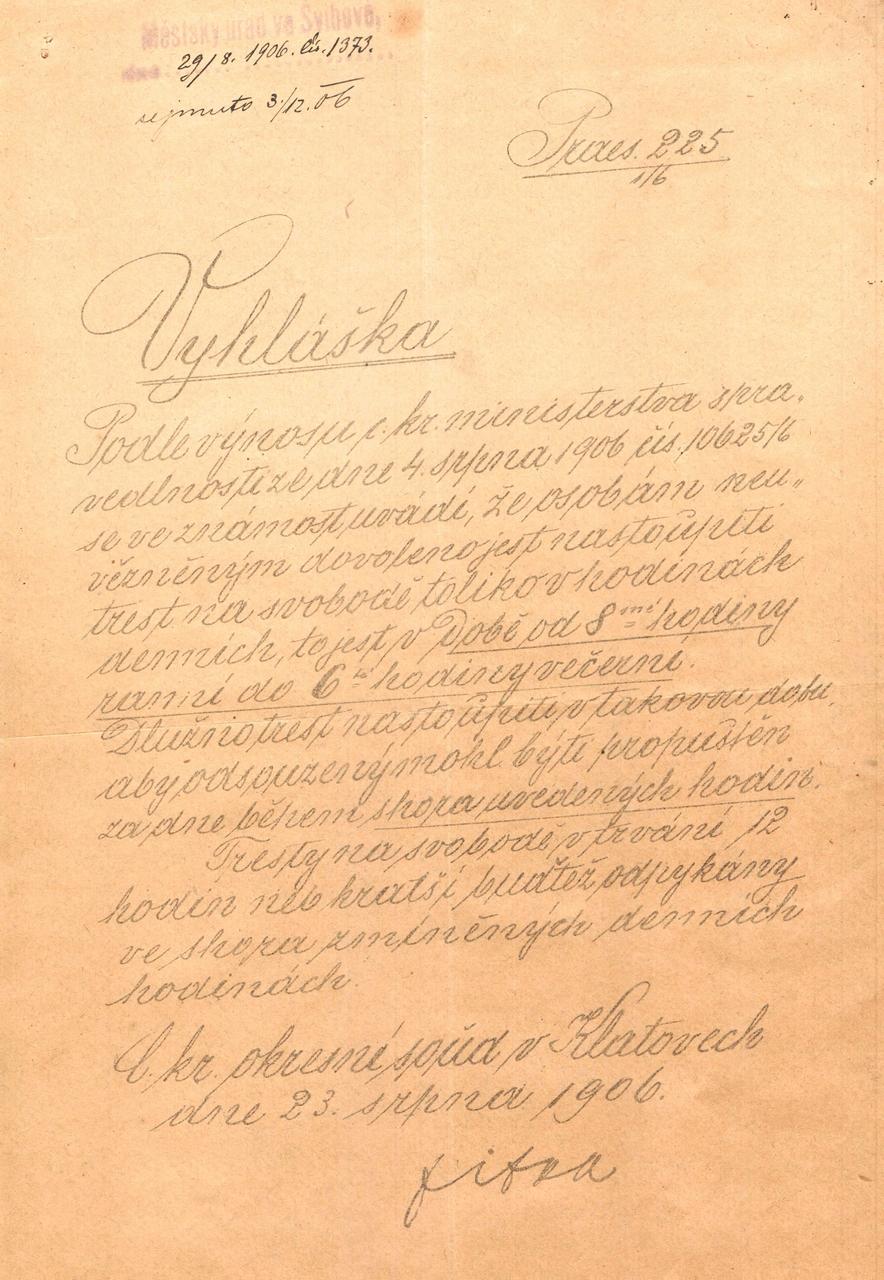 Městský úřad ve Švihově,
dne 29/8. 1906. čís. 1373.
sejmuto 3./12. 06
Praes. 225
1/6
Vyhláška
Podle výnosu c. kr. ministerstva spra„
vedlnosti ze dne 4. srpna 1906 čís. 10625/6
se ve známost uvádí, že osobám neu„
vězněným dovoleno jest nastoupiti
trest na svobodě toliko v hodinách
denních, to jest v Době od 8mé hodiny
ranní do 6té hodiny večerní.
Dlužno trest nastoupiti v takovou dobu,
aby odsouzený mohl býti propuštěn
za dne během shora uvedených hodin.
Tresty na svobodě v trvání 12
hodin neb kratší buďtež odpykány
ve shora zmíněných denních
hodinách.
C. kr. okresní soud v Klatovech
dne 23. srpna 1906.